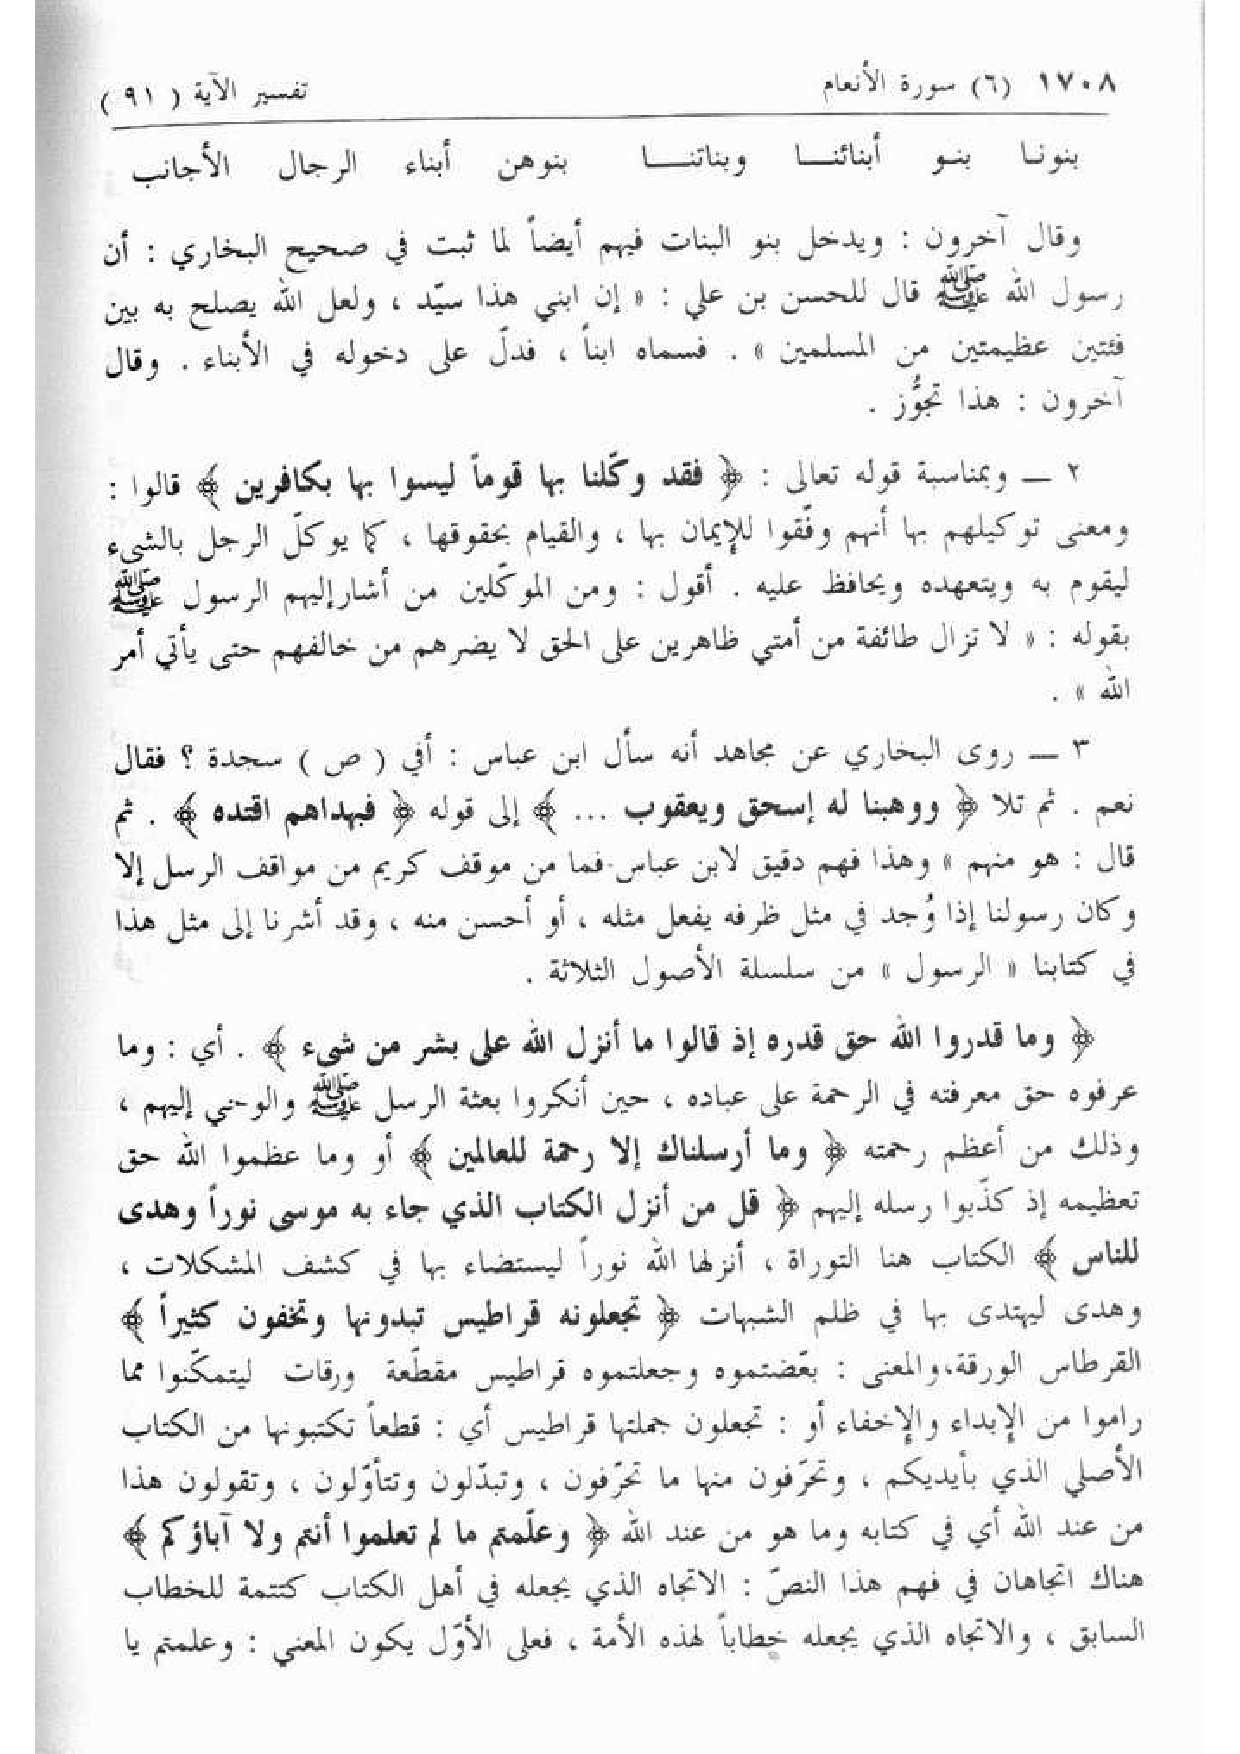 ١٧٠٨ (٦) سورة الأنعام تفسير الآية ( ٩١ )
بنونـا بنـو أبنائنـــا وبناتنـــا بنوهن أبناء الرجال الأجانب
وقال آخرون : ويدخل بنو البنات فيهم أيضاً لما ثبت في صحيح البخاري : أن
رسول الله ﷺ قال للحسن بن علي : « إن ابني هذا سيّد ، ولعل الله يصلح به بين
فئتين عظيمتين من المسلمين » . فسماه ابناً ، فدلّ على دخوله في الأبناء . وقال
آخرون : هذا تجوُّز .
٢ ــ وبمناسبة قوله تعالى : ﴿ فقد وكّلنا بها قوماً ليسوا بها بكافرين ﴾ قالوا :
ومعنى توكيلهم بها أنهم وفّقوا للإيمان بها ، والقيام بحقوقها ، كما يوكلّ الرجل بالشيء
ليقوم به ويتعهده ويحافظ عليه . أقول : ومن الموكّلين من أشار إليهم الرسول ﷺ
بقوله : « لا تزال طائفة من أمتي ظاهرين على الحق لا يضرهم من خالفهم حتى يأتي أمر
الله » .
٣ ــ روى البخاري عن مجاهد أنه سأل ابن عباس : أفي ( ص ) سجدة ؟ فقال
نعم . ثم تلا ﴿ ووهبنا له إسحق ويعقوب ... ﴾ إلى قوله ﴿ فبهداهم اقتده ﴾ . ثم
قال : هو منهم » وهذا فهم دقيق لابن عباس فما من موقف كريم من مواقف الرسل إلا
وكان رسولنا إذا وُجد في مثل ظرفه يفعل مثله ، أو أحسن منه ، وقد أشرنا إلى مثل هذا
في كتابنا « الرسول » من سلسلة الأصول الثلاثة .
﴿ وما قدروا الله حق قدره إذ قالوا ما أنزل الله على بشر من شيء ﴾ . أي : وما
عرفوه حق معرفته في الرحمة على عباده ، حين أنكروا بعثة الرسل ﷺ والوحي إليهم ،
وذلك من أعظم رحمته ﴿ وما أرسلناك إلا رحمة للعالمين ﴾ أو وما عظموا الله حق
تعظيمه إذ كذّبوا رسله إليهم ﴿ قل من أنزل الكتاب الذي جاء به موسى نوراً وهدى
للناس ﴾ الكتاب هنا التوراة ، أنزلها الله نوراً ليستضاء بها في كشف المشكلات ،
وهدى ليهتدى بها في ظلم الشبهات ﴿ تجعلونه قراطيس تبدونها وتخفون كثيراً ﴾
القرطاس الورقة،والمعنى : بعّضتموه وجعلتموه قراطيس مقطّعة ورقات ليتمكّنوا مما
راموا من الإبداء والإخفاء أو : تجعلون جملتها قراطيس أي : قطعاً تكتبونها من الكتاب
الأصلي الذي بأيديكم ، وتحرّفون منها ما تحرّفون ، وتبدّلون وتتأوّلون ، وتقولون هذا
من عند الله أي في كتابه وما هو من عند الله ﴿ وعلّمتم ما لم تعلموا أنتم ولا آباؤكم ﴾
هناك اتجاهان في فهم هذا النصّ : الاتجاه الذي يجعله في أهل الكتاب كتتمة للخطاب
السابق ، والاتجاه الذي يجعله خطاباً لهذه الأمة ، فعلى الأوّل يكون المعنى : وعلمتم يا